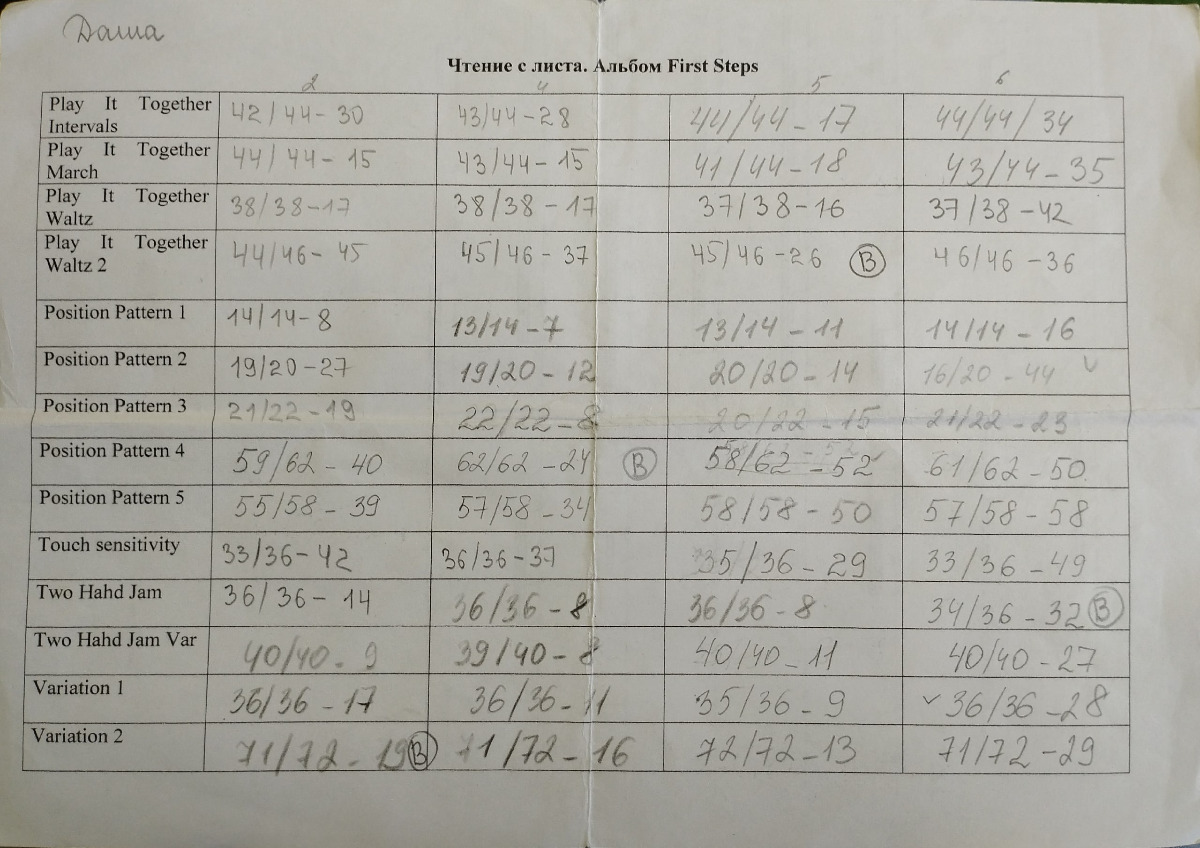 Даша
Чтение с листа. Альбом First Steps
2 4 5 6
Play It Together 42/44-30 43/44-28 44/44-17 44/44/34
Intervals
Play It Together 44/44-15 43/44-15 41/44-18 43/44-35
March
Play It Together 38/38-17 38/38-17 37/38-16 37/38-42
Waltz
Play It Together 44/46-45 45/46-37 45/46-26 В 46/46-36
Waltz 2
Position Pattern 1 14/14-8 13/14-7 13/14-11 14/14-16
Position Pattern 2 19/20-27 19/20-12 20/20-14 16/20-44 ✓
Position Pattern 3 21/22-19 22/22-8 20/22-15 21/22-23
Position Pattern 4 59/62-40 62/62-24 В 58/62-52 61/62-50
Position Pattern 5 55/58-39 57/58-34 58/58-50 57/58-58
Touch sensitivity 33/36-42 36/36-37 35/36-29 33/36-49
Two Hahd Jam 36/36-14 36/36-8 36/36-8 34/36-32 В
Two Hahd Jam Var 40/40-9 39/40-8 40/40-11 40/40-27
Variation 1 36/36-17 36/36-11 35/36-9 ✓ 36/36-28
Variation 2 71/72-19 В 71/72-16 72/72-13 71/72-29